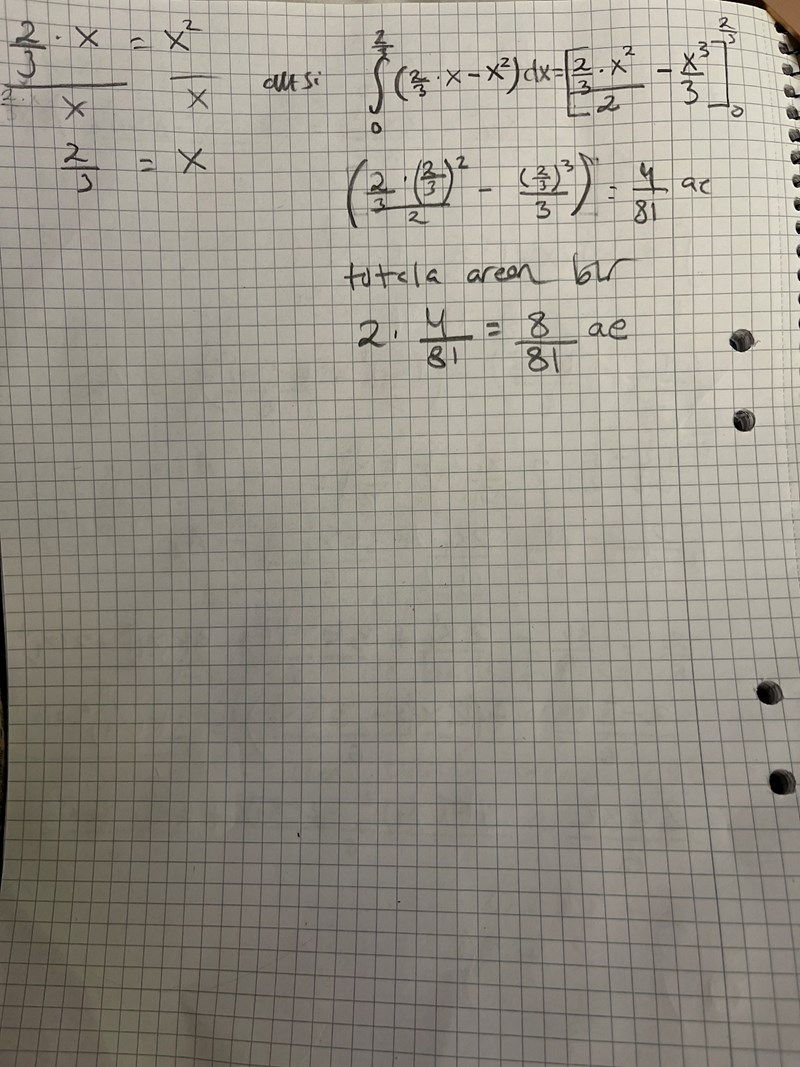 2/3 · x = x²
x x
2/3 = x
∫₀^(2/3) (2/3 · x − x²) dx = [(2/3 · x²)/2 − x³/3]₀^(2/3)
((2/3 · (2/3)²)/2 − (2/3)³/3) = 4/81 ae
totala arean blir
2 · 4/81 = 8/81 ae